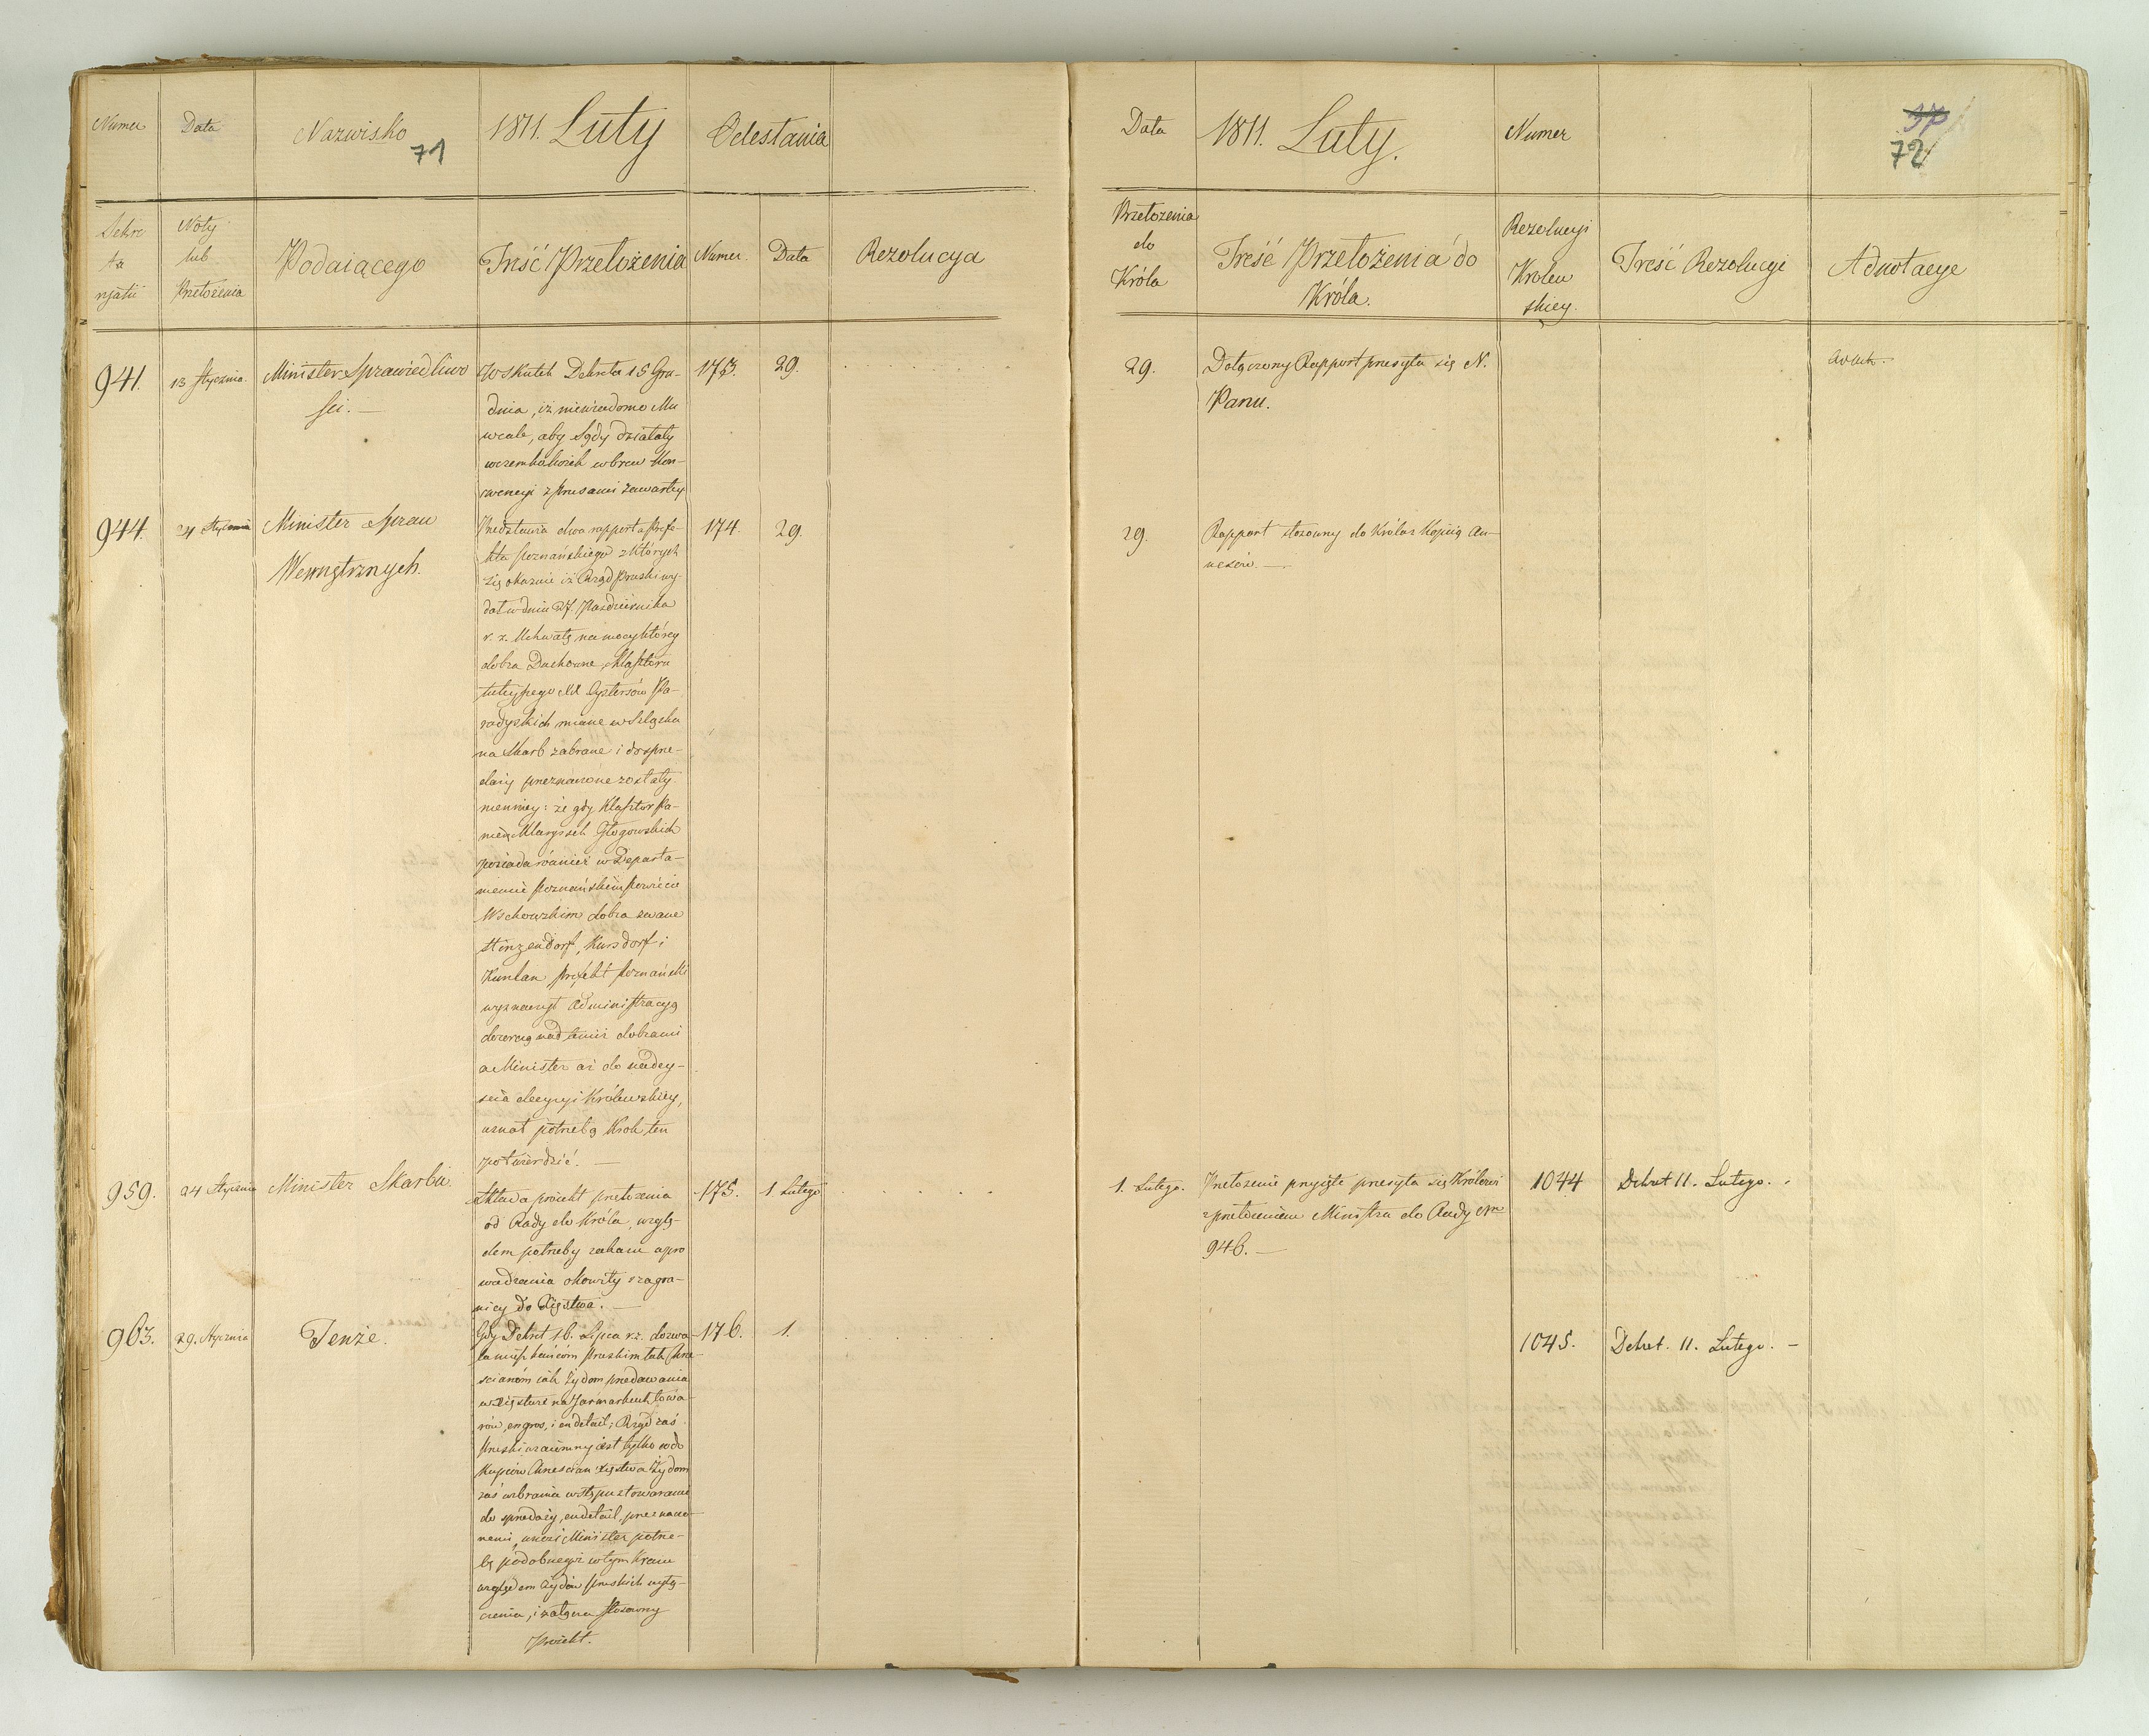 Numer
Data
Nazwisko
71
1811. Luty
Odesłania
Sekre
ta
ryatu
Noty
lub
Przełożenia
Podaiącego
Treść Przełożenia
Numer
Data
Rezolucya
941.
13 Stycznia.
Minister Sprawiedliwo
ści. —
W skutek Dekretu 15 Gru-
dnia, iż niewiadomo Mu
wcale, aby Sądy działały
wczemkolwiek wbrew Kon-
wencyi z Prusami zawartey
173.
29.
944.
24 Stycznia
Minister Spraw
Wewnętrznych.
Przedstawia dwa rapporta Prefe-
kta Poznańskiego z których
się okazuie iż Rząd Pruski wy-
dał w dniu 27. Października
r. z. Uchwałę na mocy którey
dobra Duchowne, Klasztoru
tuteyszego XX Cystersów Pa-
radyskich miane w Szląsku
na Skarb zabrane i do sprze-
daży przeznaczone zostały.
niemniey: że gdy Klasztor Pa-
nien Klarysek Głogowskich
posiada również w Departa-
mencie Poznańskim Powiecie
Wschowskim dobra zwane
Hinzendorf, Kursdorf i
Prefekt Poznański
wyznaczył administracyą
dozorczą nad temiż dobrami
a Minister aż do nadey-
ścia decyzyi Królewskiey,
uznał potrzebę Krok ten
potwierdzić. —
174.
29.
959.
24 Stycznia
Minister Skarbu
Składa proiekt przełożenia
od Rady do Króla, wzglę-
dem potrzeby zakazu wpro
wadzenia okowity z zagra-
nicy do Xięstwa. —
175.
1 Lutego
963.
29. Stycznia
Tenże.
Gdy Dekret 16. Lipca r.z. dozwa-
la mieszkańcom Pruskim tak Chrze-
ścianom iak Żydom przedawania
w Xięstwie na Jarmarkach towa-
rów, en gros, i en detail; Rząd zaś
Pruski wzaiemny iest tylko co do
Kupców Chrześcian Xięstwa Żydom
zaś wzbrania wstępu z towarami
do sprzedaży, en detail, przeznaczo-
nemi, uznaie Minister potrze-
bę podobnegoż w tym Kraiu
względem Żydów Pruskich wyłą-
czenia, i załącza stosowny
proiekt.
176.
1.
Data
1811. Luty.
Numer
72
Przełożenia
do
Króla
Treść Przełożenia do
Króla.
Rezolucyi
Krolew
skiey.
Treść Rezolucyi
Adnotacye
29.
Dołączony Rapport przesyła się N.
Panu.
29.
Rapport stosowny do Króla z Kopią An-
nexów. —
1. Lutego.
Przełożenie przyięte przesyła się Królowi
z przełożeniem Ministra do Rady Nro
946. —
1044
Dekret 11. Lutego.
1045.
Dekret. 11. Lutego. —